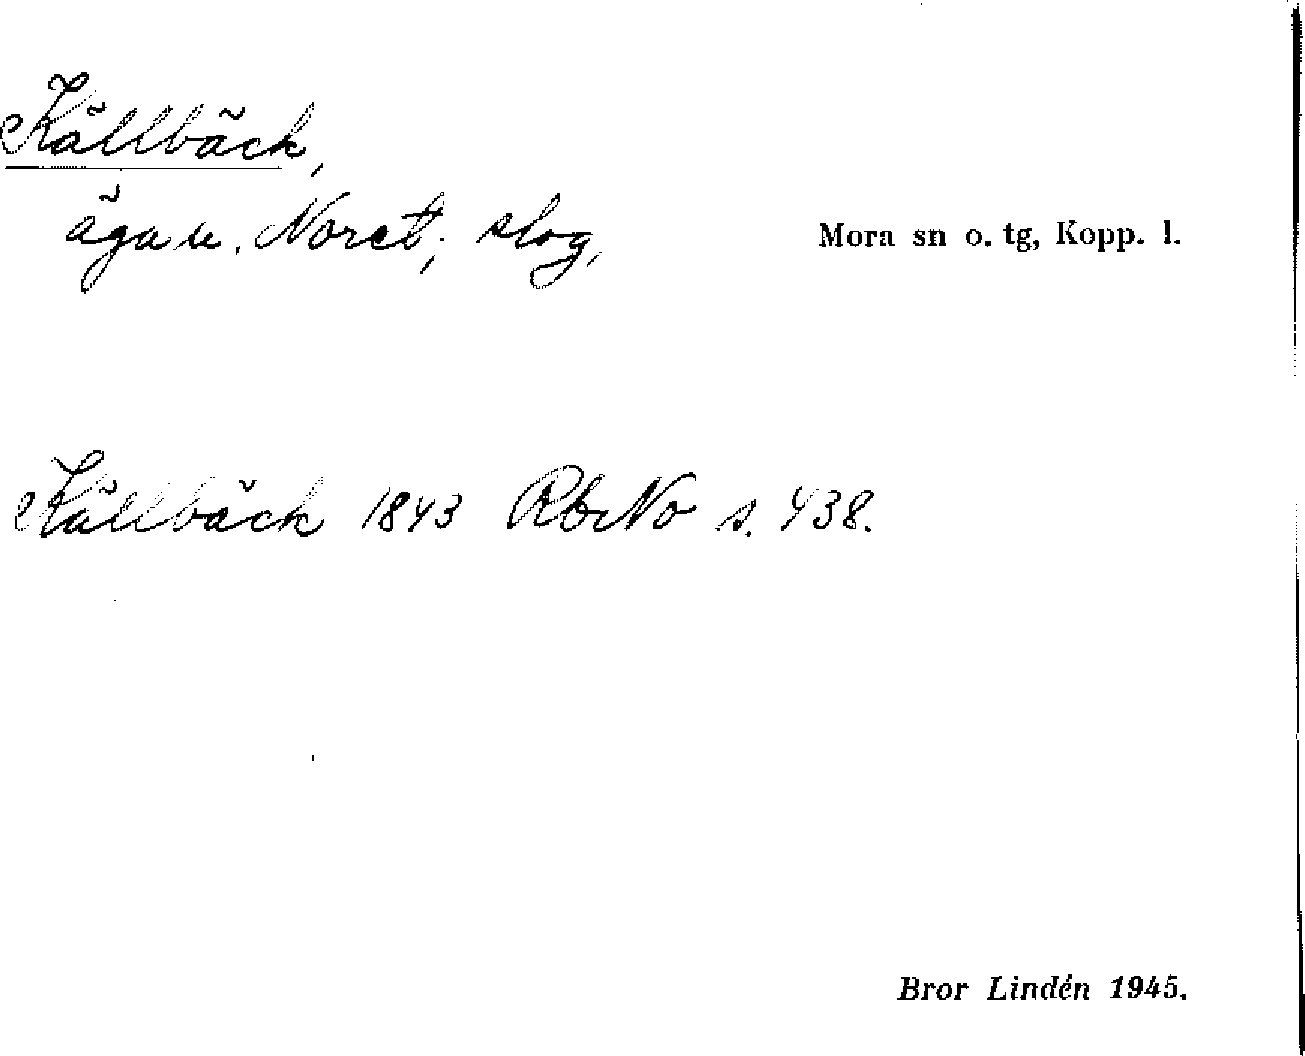 Källbäck,
äga u. Noret; slog,
Mora sn o. tg, Kopp. l.
Källbäck 1843 RbNo s. 438.
Bror Lindén 1945.